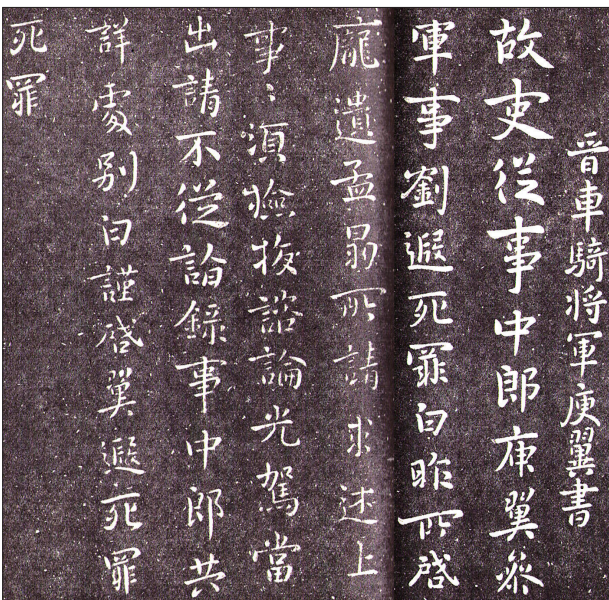 晉車騎将軍庾翼書
故吏従事中郎庾翼参
軍事劉遐死罪白昨所啓
龐遺孟昂所請求述上
事〻須檢校諮論光駕當
出請不從詣錄事中郎共
詳處別白謹啓翼遐死罪
死罪